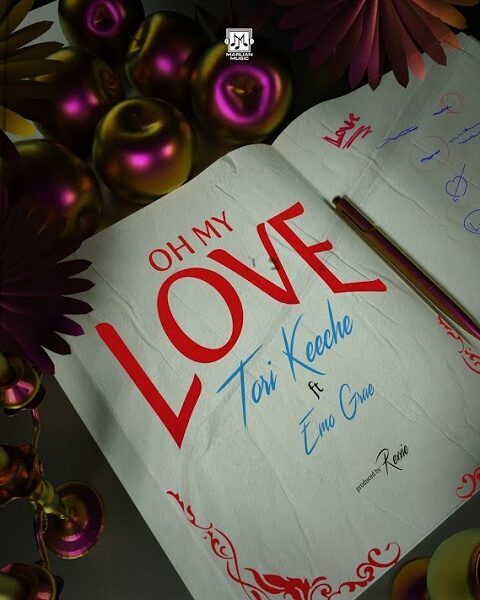 MARLIAN
MUSIC
Love
OH MY
LOVE
Tori Keeche
ft
Emo Grae
produced by Rexxie